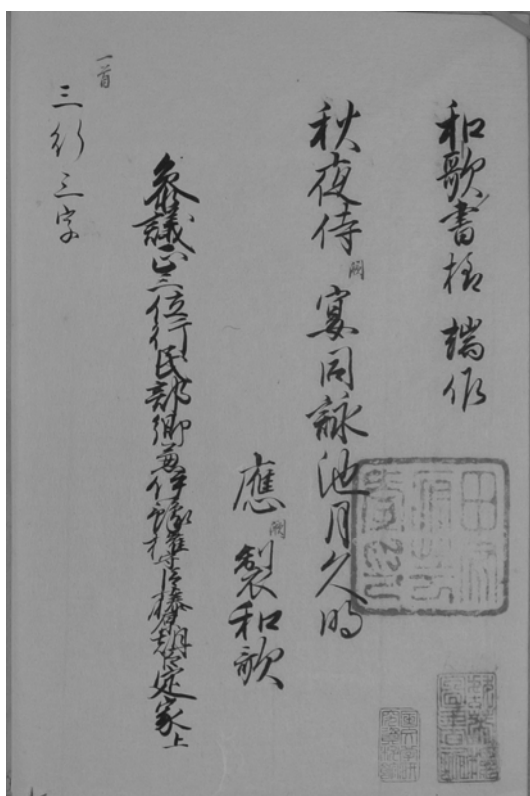 和歌書様 端作
秋夜侍 闕 宴同詠池月久明
應 闕 製和歌
参議正三位行民部卿兼伊豫權守臣藤原朝臣定家上
一首
三行三字